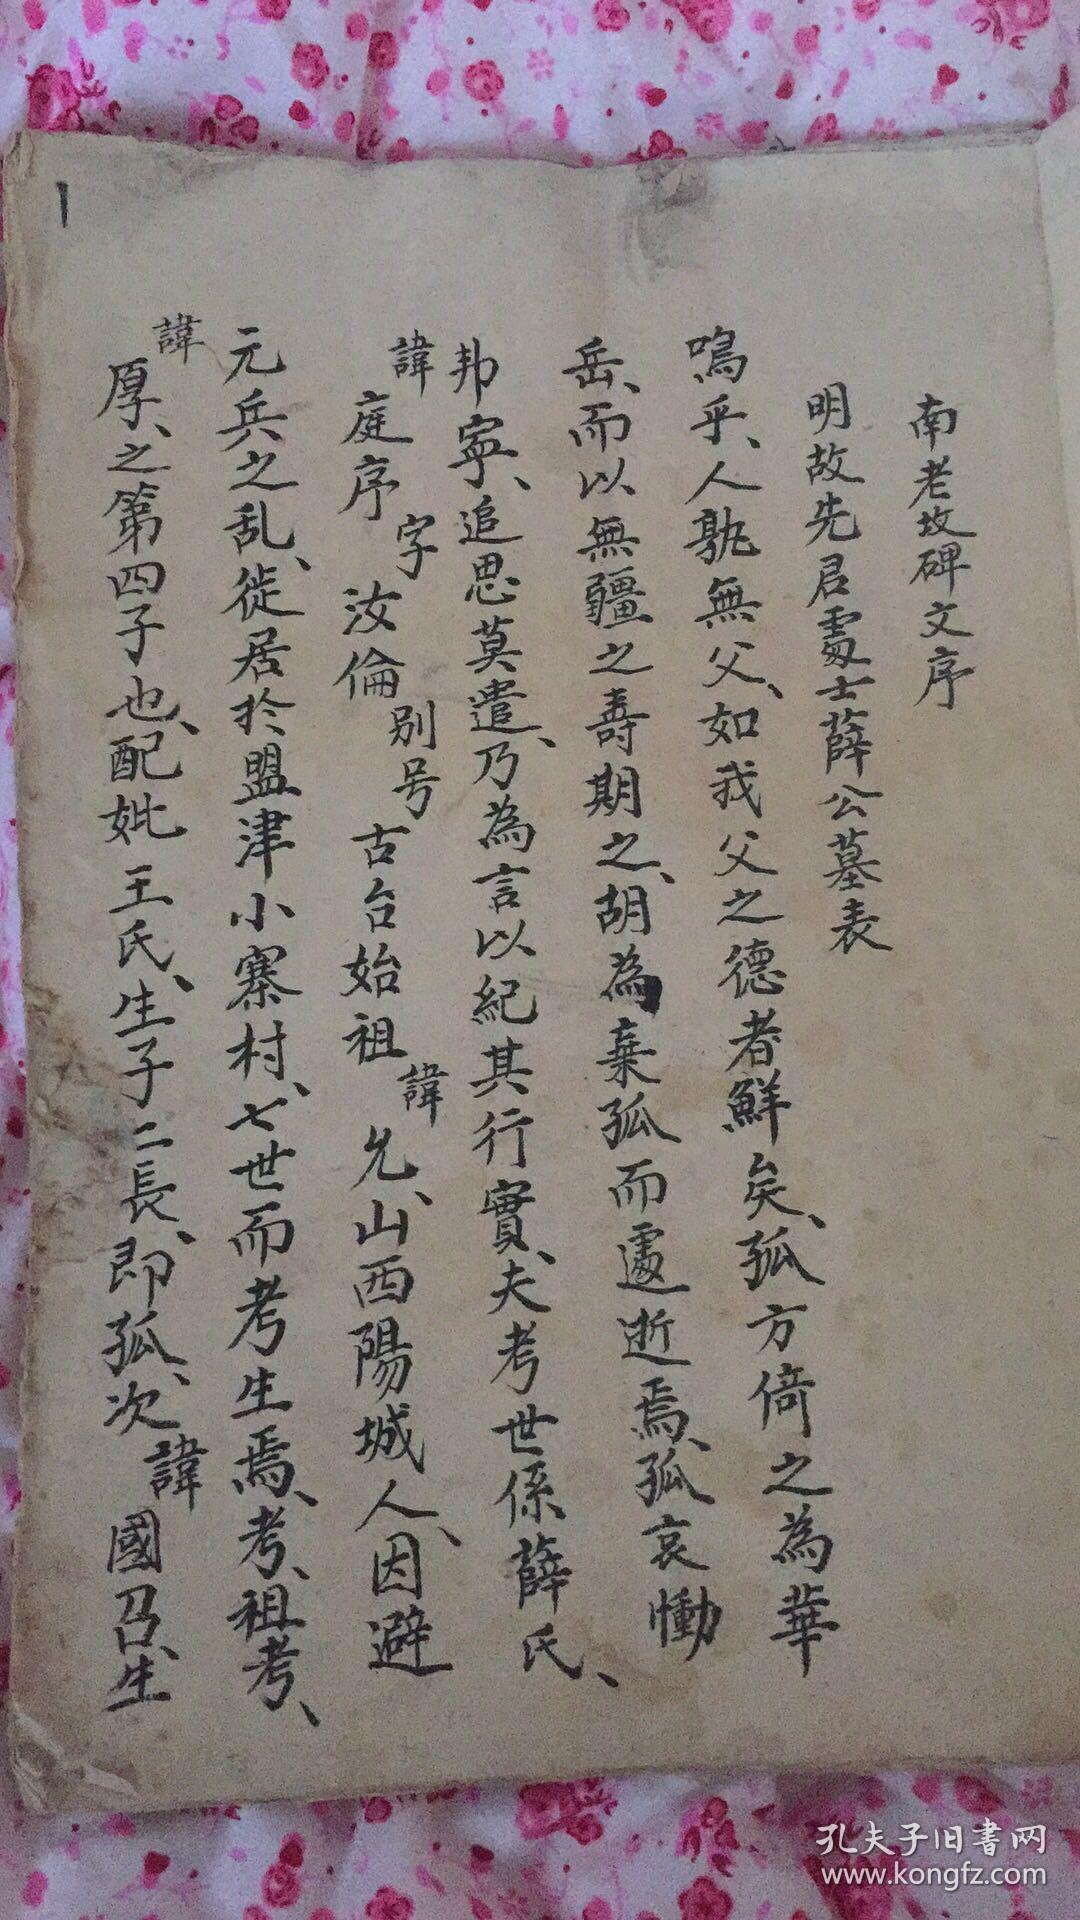 南老坟碑文序
明故先君處士薛公墓表
鳴乎、人孰無父、如我父之德者鮮矣、孤方倚之為華
岳、而以無疆之壽期之、胡為棄孤而遽逝焉、孤哀慟
邦寧、追思莫遣、乃為言以紀其行實、夫考世係薛氏、
諱庭序字汝倫别号古台始祖諱允、山西陽城人、因避
元兵之乱、徙居於盟津小寨村、七世而考生焉、考、祖考、
諱厚、之第四子也、配妣王氏、生子二長、即孤、次諱國召、生
1
孔夫子旧書网
www.kongfz.com